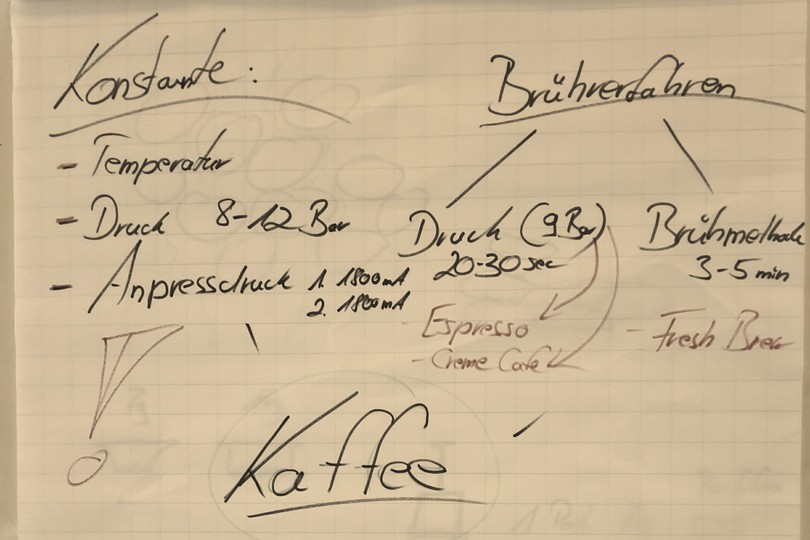 Konstante:
- Temperatur
- Druck 8-12 Bar
- Anpressdruck 1. 1800mA
2. 1800mA
Brühverfahren
Druck (9 Bar)
20-30 sec
- Espresso
- Creme Cafe
Brühmethode
3-5 min
- Fresh Brew
Kaffee